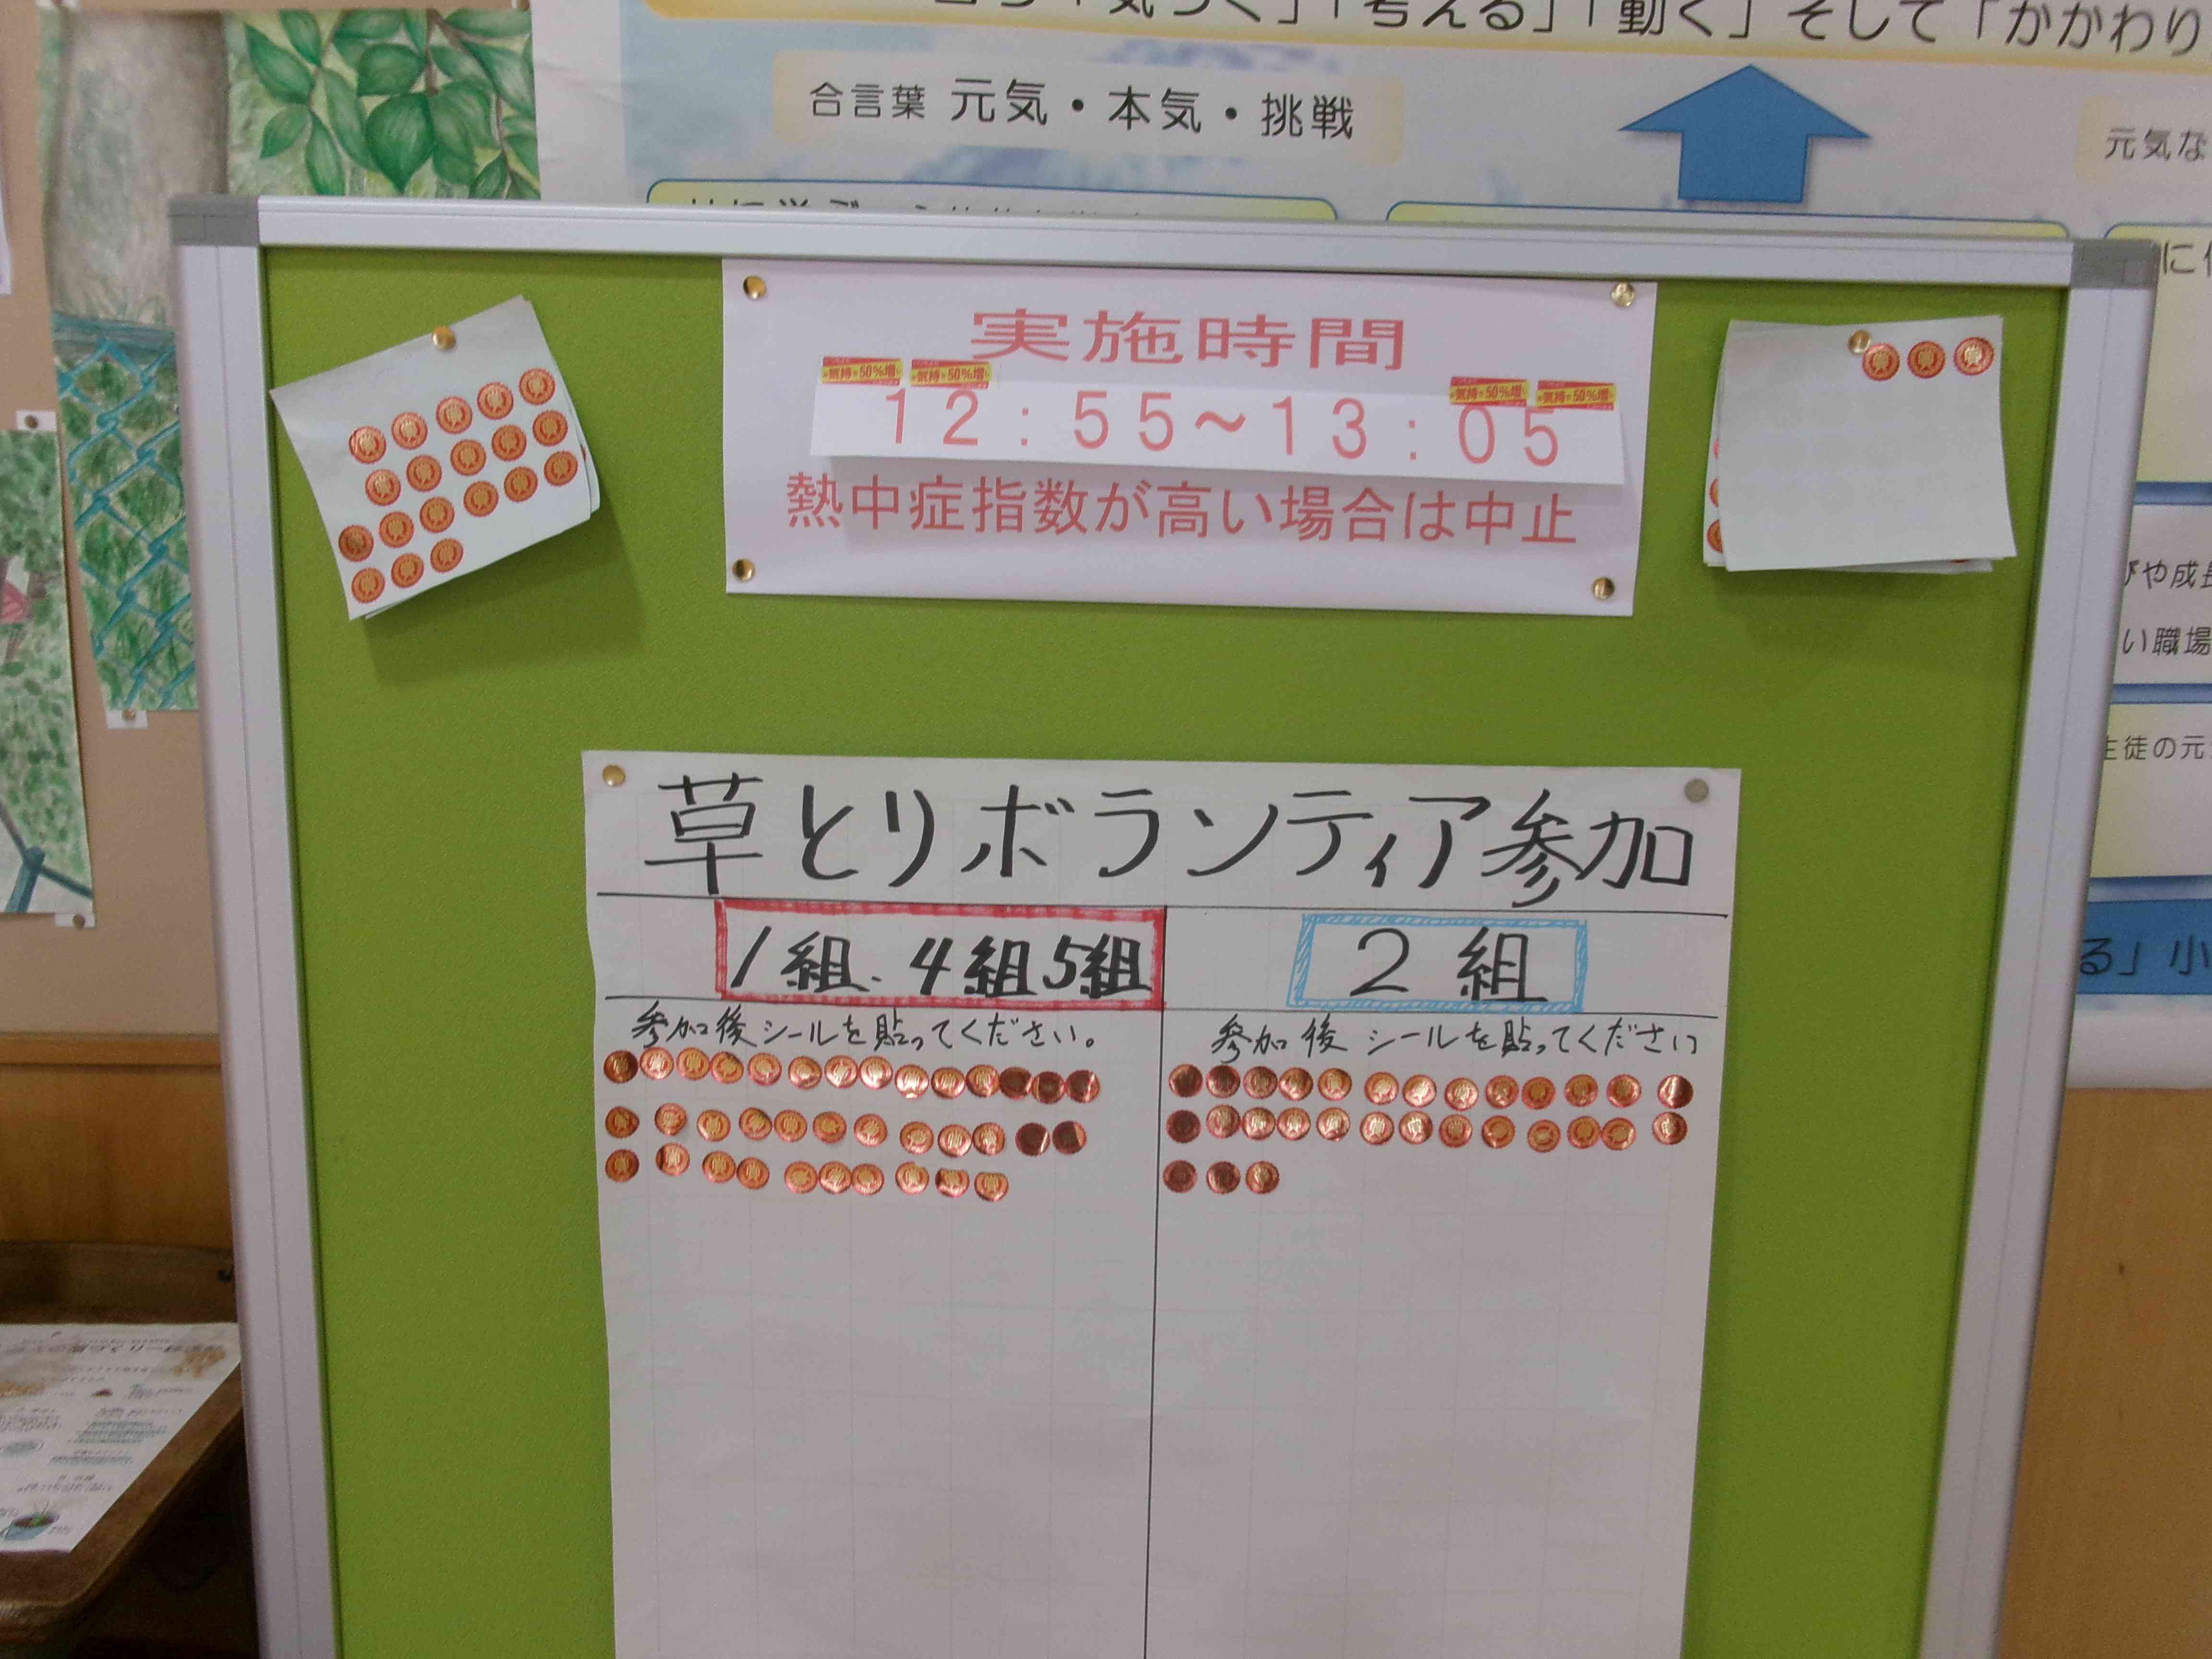 「考える」「動く」そして「かかわり
合言葉 元気・本気・挑戦
元気な
実施時間
気持ち50%増 気持ち50%増 気持ち50%増 気持ち50%増
12:55～13:05
熱中症指数が高い場合は中止
い職場
生徒の元
る」小
草とりボランティア参加
1組．4組5組
2組
参加後シールを貼ってください。
参加後シールを貼ってください